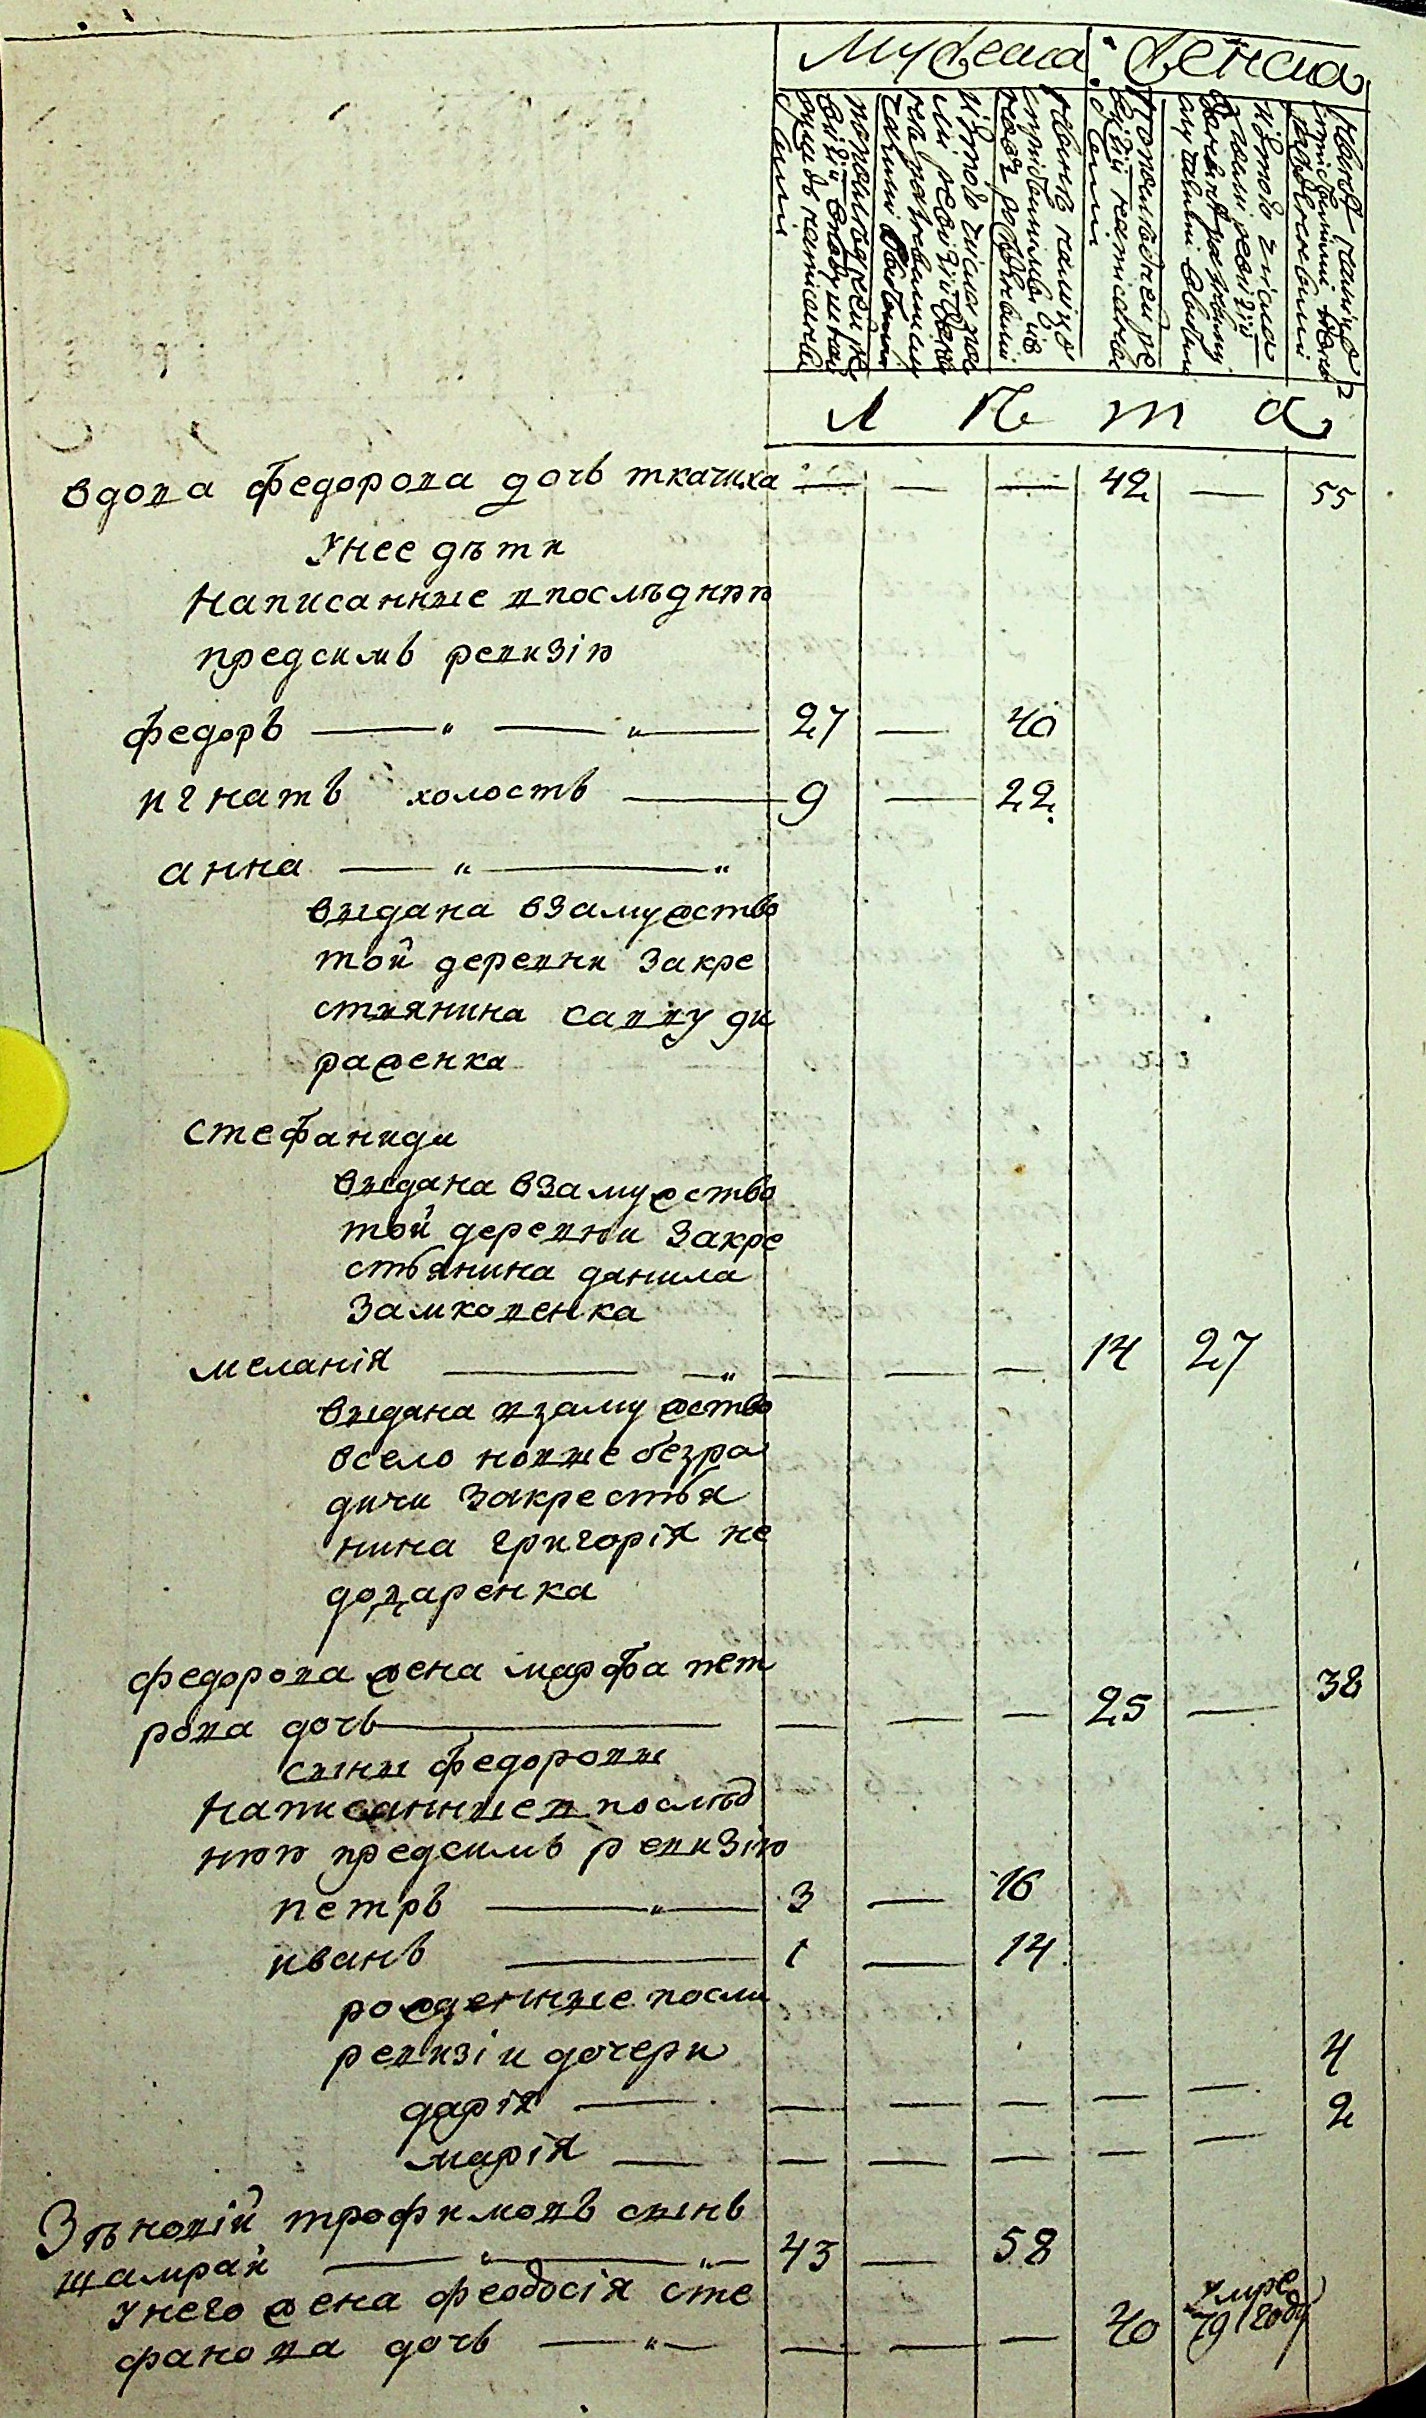 мужеска женска
по последней ре
визіи и по оной
душъ написан
ныя
изъ того числа
разными
ныне на лицо
по последней ре
визіи написан
ныя
изъ того числа
ныне на лицо
л ѣ т а
вдова федорова дочь ткачиха — — — 42 — 55
унее дѣти
написанные впослѣднюю
предсимъ ревизію
федоръ — " — " — 27 — 40
игнатъ холостъ — 9 — 22
анна — " — "
выдана взамужство
той деревни закре
стьянина савву ди
раженка
стефанида
выдана взамужство
той деревни закре
стьянина данила
замковенка
меланія — — " — — — 14 27
выдана взамужство
всело новые безра
дичи закрестья
нина григорія не
доваренка
федорова жена марфа пет
рова дочь — — — — 25 — 38
сыны федоровы
написанные впослѣд
нюю предсимъ ревизію
петръ — " — 3 — 16
иванъ — 1 — 14
рожденные посли
ревизіи дочери
дарія — — — — — — 4
марія — — — — — — 2
Зѣновій трофимовъ сынъ
шамрай — " — " — 43 — 58
унего жена феодосія сте
фанова дочь — " — — — — 40 умре 791 году